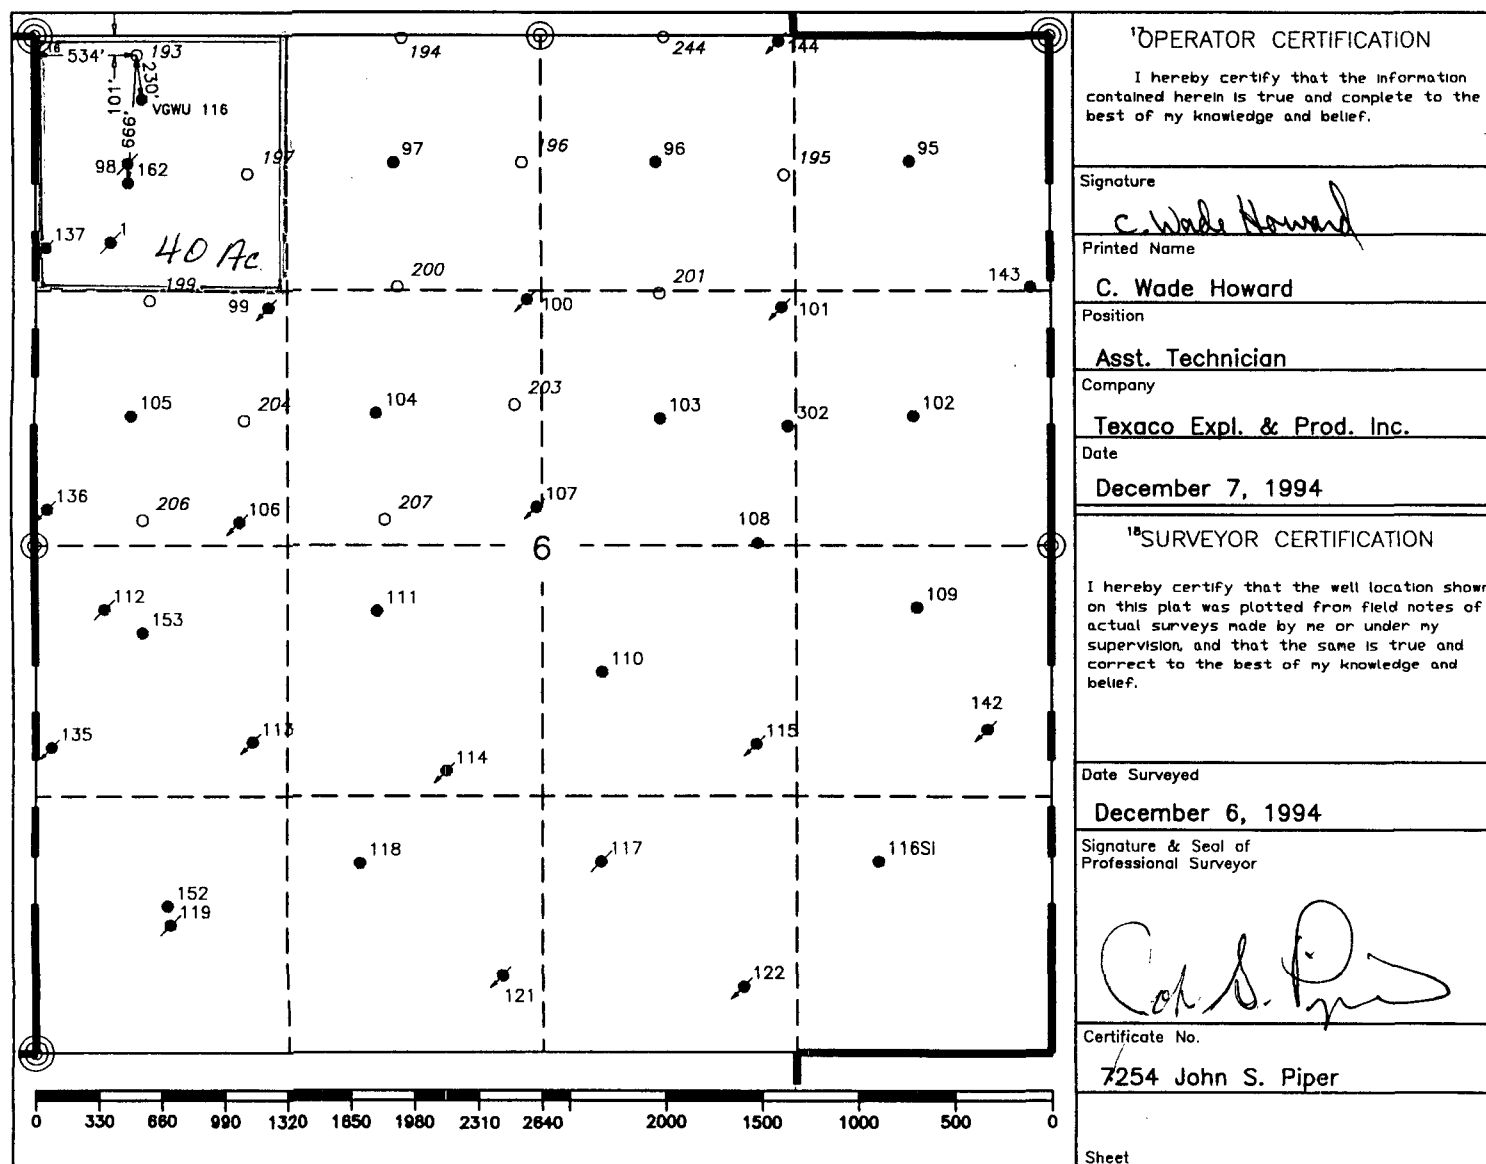 16
534'
193
194
244
144
101'
230'
999'
VGWU 116
98
162
197
97
196
96
195
95
137
1
40 Ac.
199
99
200
100
201
101
143
105
204
104
203
103
302
102
136
206
106
207
107
108
6
112
153
111
110
109
135
113
114
115
142
118
117
116SI
152
119
121
122
0 330 660 990 1320 1650 1980 2310 2640 2000 1500 1000 500 0
17OPERATOR CERTIFICATION
I hereby certify that the information
contained herein is true and complete to the
best of my knowledge and belief.
Signature
C. Wade Howard
Printed Name
C. Wade Howard
Position
Asst. Technician
Company
Texaco Expl. & Prod. Inc.
Date
December 7, 1994
18SURVEYOR CERTIFICATION
I hereby certify that the well location shown
on this plat was plotted from field notes of
actual surveys made by me or under my
supervision, and that the same is true and
correct to the best of my knowledge and
belief.
Date Surveyed
December 6, 1994
Signature & Seal of
Professional Surveyor
Certificate No.
7254 John S. Piper
Sheet